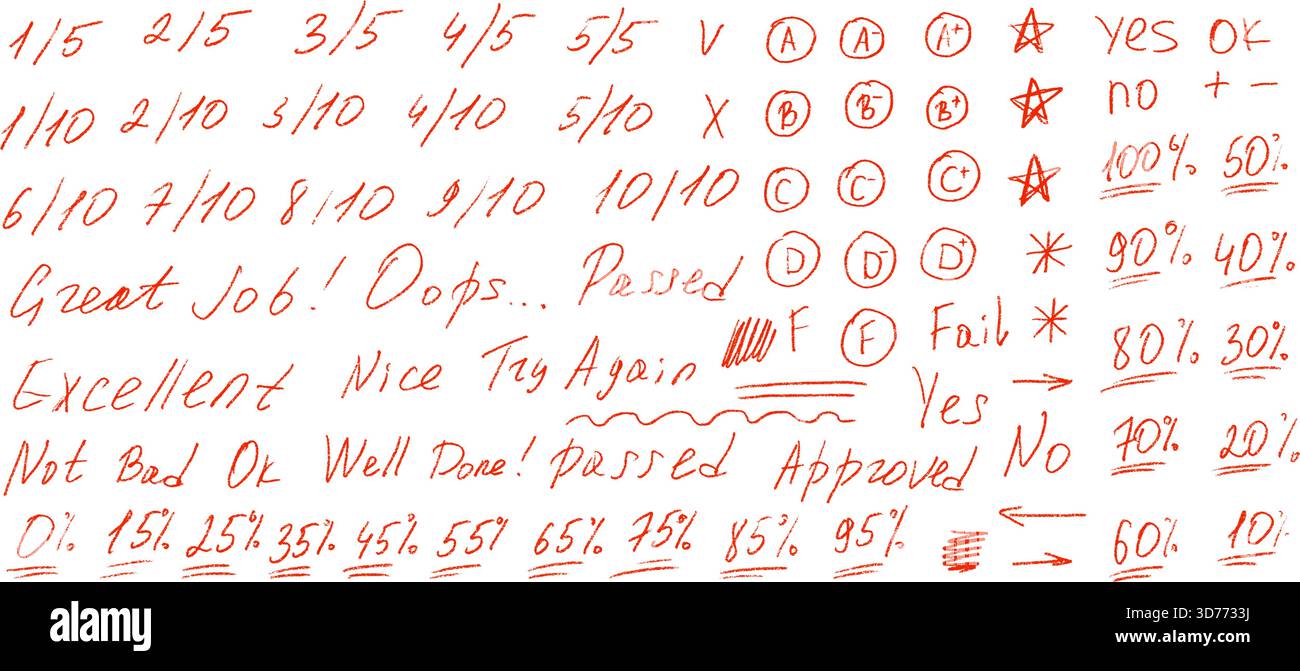 1/5 2/5 3/5 4/5 5/5 V A A- A+ yes ok
1/10 2/10 3/10 4/10 5/10 X B B- B+ no + -
6/10 7/10 8/10 9/10 10/10 C C- C+ 100% 50%
Great Job! Oops... Passed D D- D+ 90% 40%
Excellent Nice Try Again F F Fail 80% 30%
Yes
Not Bad Ok Well Done! passed Approved No 70% 20%
0% 15% 25% 35% 45% 55% 65% 75% 85% 95% 60% 10%
alamy
Image ID: 3D7733J
www.alamy.com